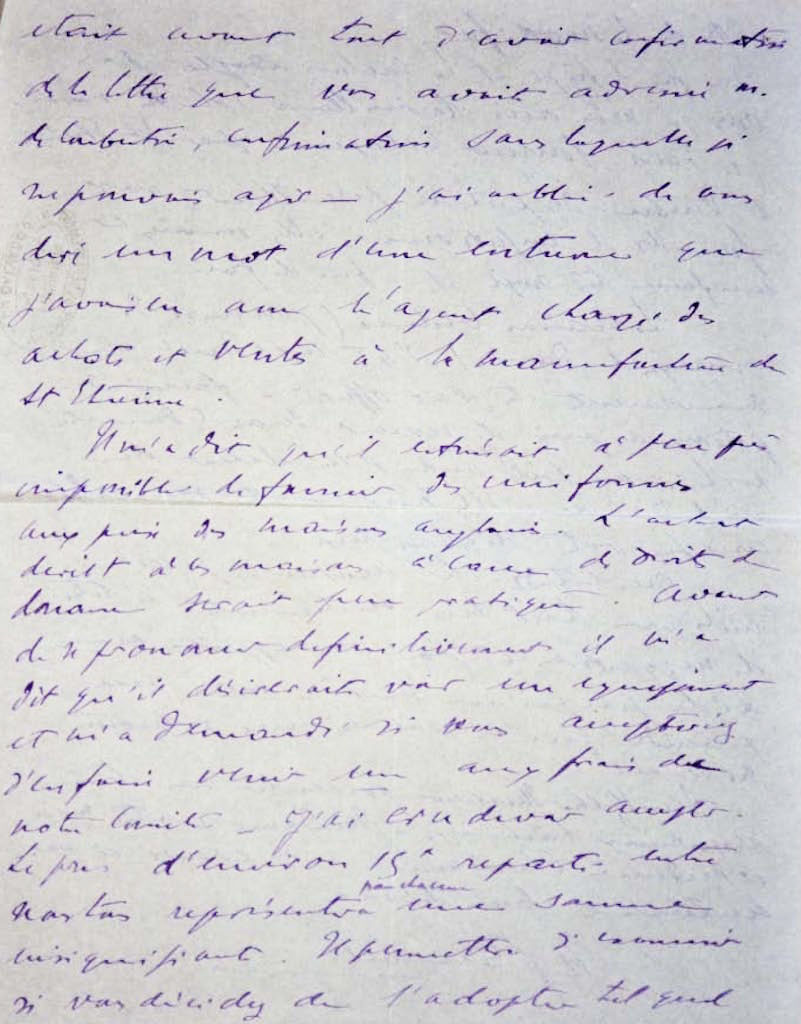 était avant tout d'avoir confirmation
de la lettre que vous avait adressée M.
de Coubertin, confirmation sans laquelle je
ne pouvais agir – J'ai oublié de vous
dire un mot d'une entrevue que
j'avais eu avec l'agent chargé des
achats et ventes à la manufacture de
St Etienne.
Il m'a dit qu'il lui serait à peu près
impossible de fournir des uniformes
aux prix des maisons anglaises. L'achat
direct à ces maisons à cause des droits de
douane serait peu pratique. Avant
de se prononcer définitivement il m'a
dit qu'il désirerait voir un équipement
et m'a demandé si nous accepterions
d'en faire venir un aux frais de
notre Comité – J'ai cru devoir accepter.
Le prix d'environ 15f réparti entre
nous tous représentera par chacun une somme
insignifiante. Il permettra d'examiner
si vous décidez de l'adopter tel quel